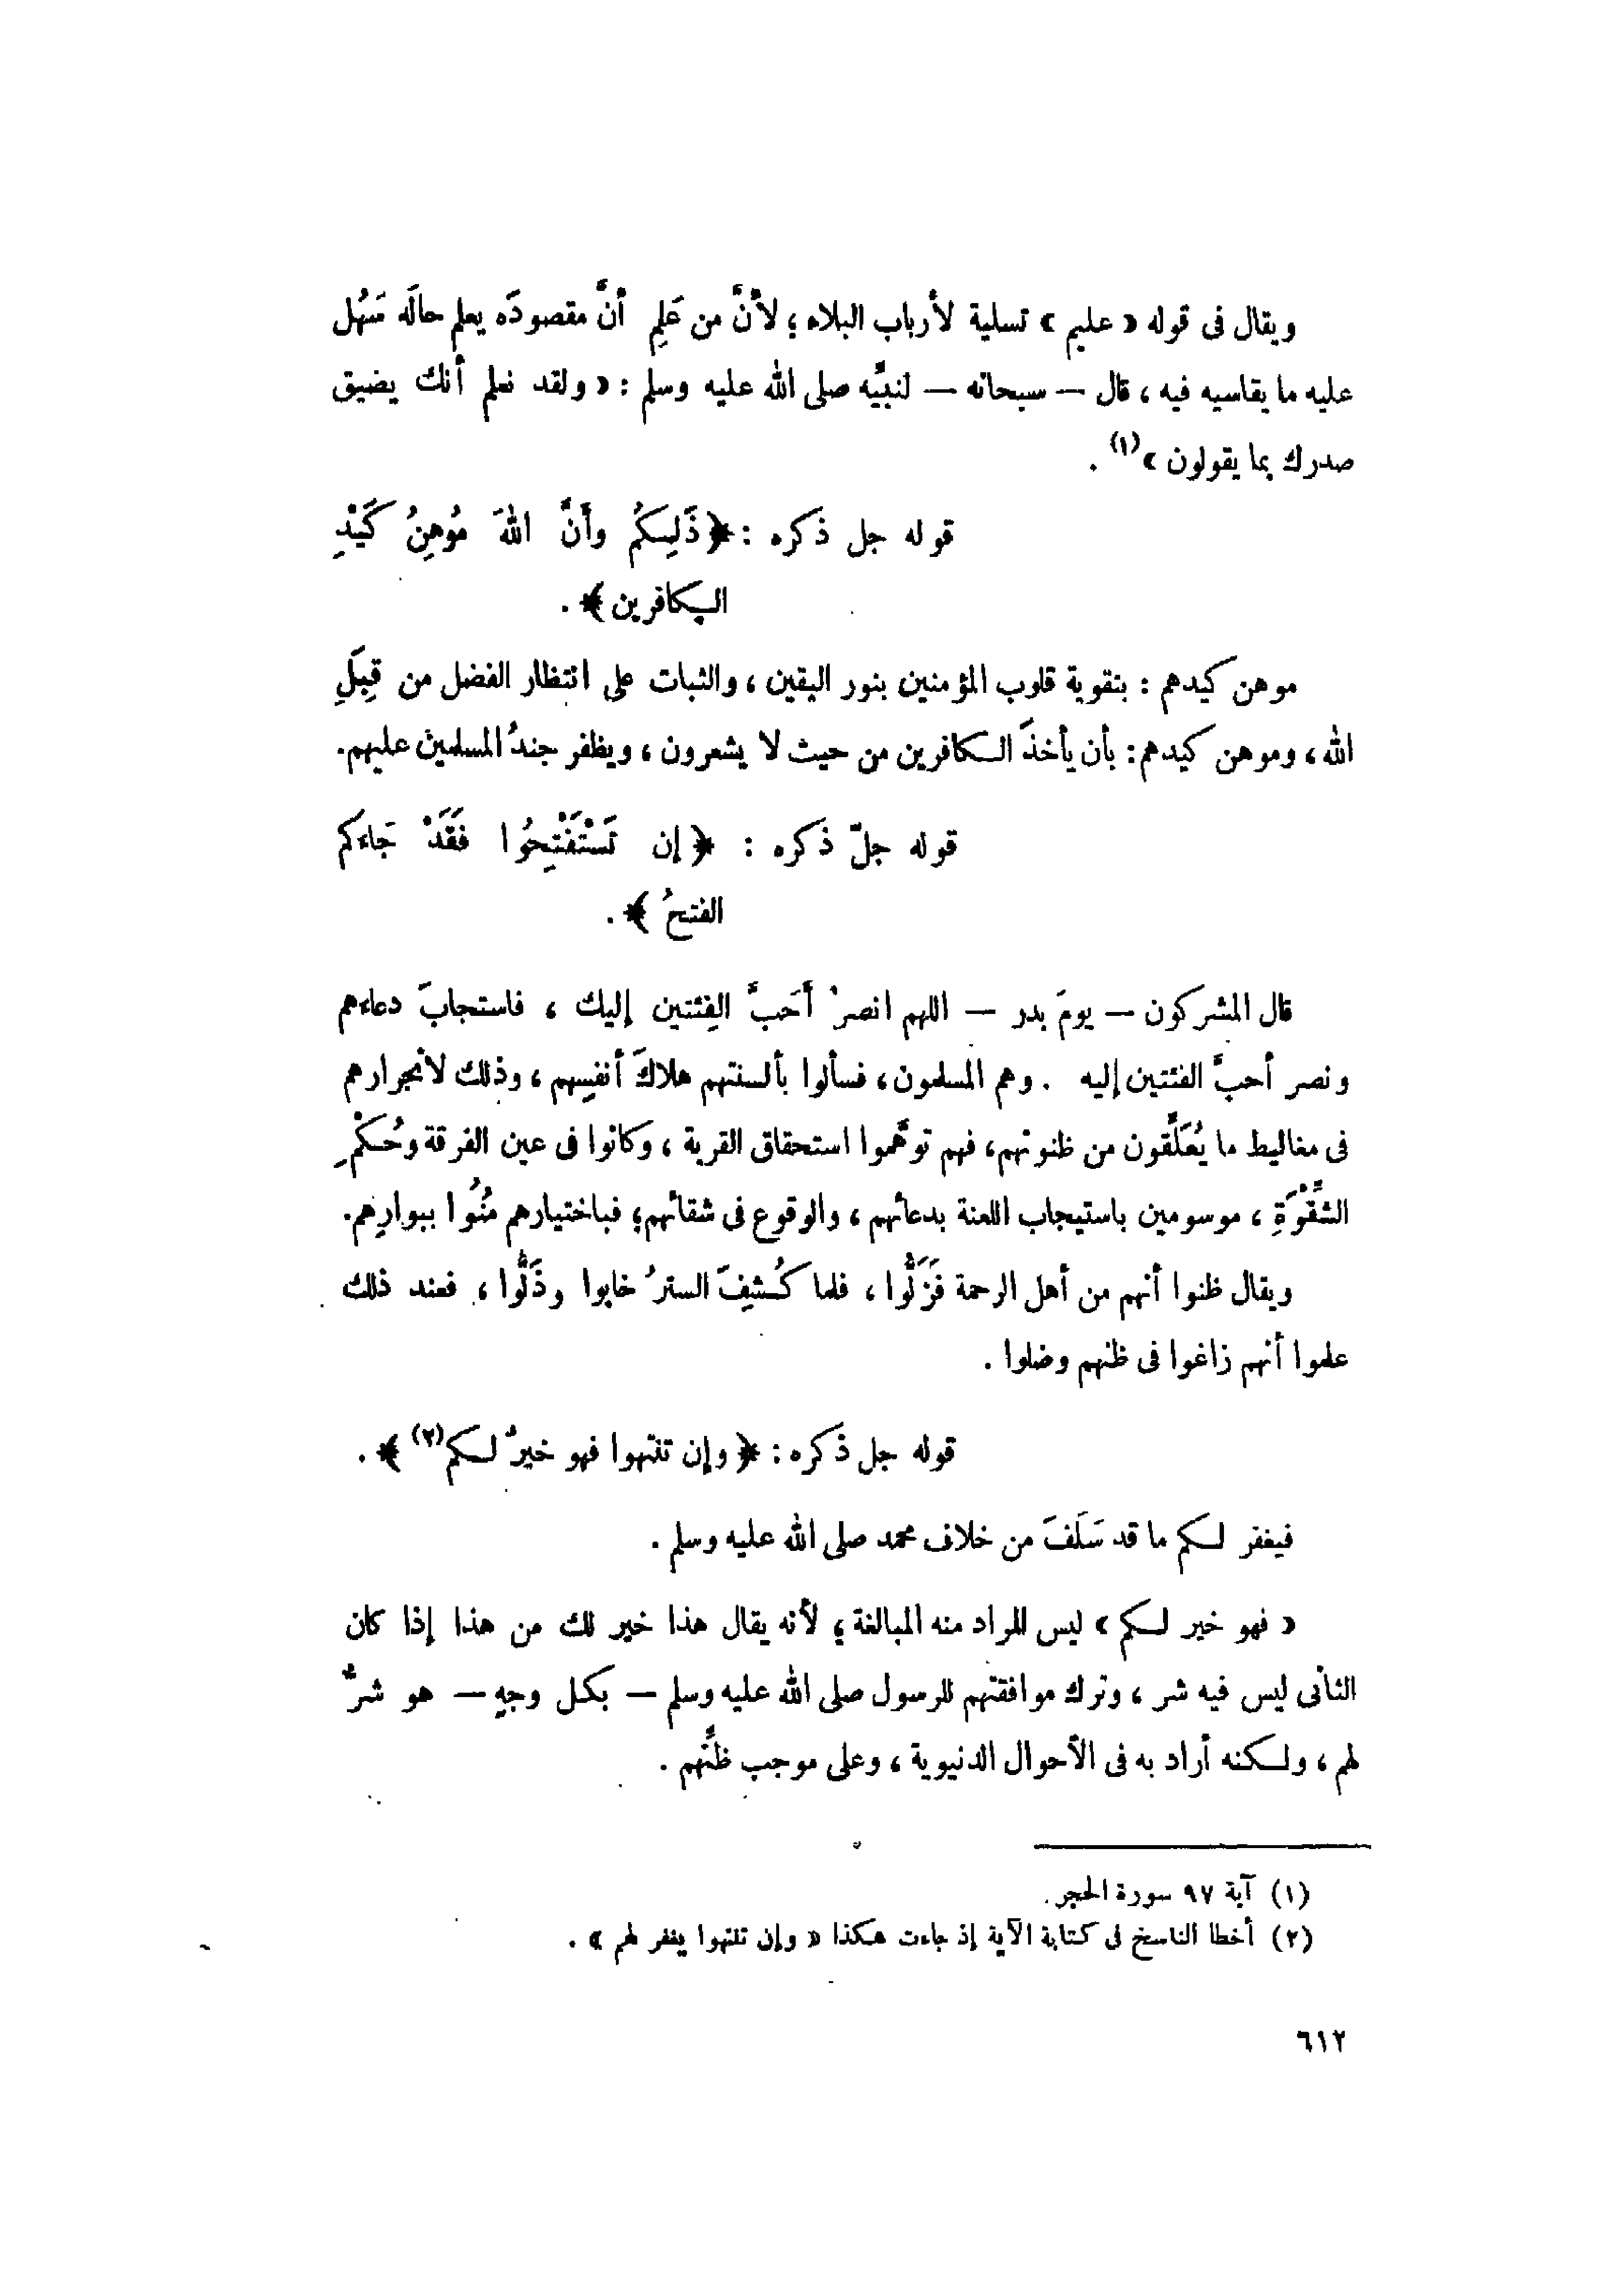 ويقال فى قوله « عليم » تسلية لأرباب البلاء ؛ لأنَّ من عَلِمِ أنَّ مقصودَه يعلم حالَه سَهُل
عليه ما يقاسيه فيه ، قال — سبحانه — لنبيِّه صلى الله عليه وسلم : « ولقد نعلم أنك يضيق
صدرك بما يقولون »(١) .
قوله جل ذكره : ﴿ذَلِكُمُ وأَنَّ اللهَ مُوهِنُ كَيْدِ
الكافرين﴾ .
موهن كيدهم : بتقوية قلوب المؤمنين بنور اليقين ، والثبات على انتظار الفضل من قِبَلِ
الله ، وموهن كيدهم : بأن يأخذَ الكافرين من حيث لا يشعرون ، ويظفر جندُ المسلمين عليهم.
قوله جلّ ذكره : ﴿إن تَسْتَفْتِحُوا فَقَدْ جَاءَكم
الفتحُ ﴾ .
قال المشركون — يومَ بدر — اللهم انصرْ أَحَبَّ الفِئتين إليك ، فاستجابَ دعاءهم
ونصر أحبَّ الفئتين إليه . وهم المسلمون ، فسألوا بألسنتهم هلاكَ أنفسِهم ، وذلك لانجرارهم
فى مغاليط ما يُعَلَّقون من ظنونهم ، فهم توهَّموا استحقاق القربة ، وكانوا فى عين الفرقة وحُكْمِ
الشِّقْوَةِ ، موسومين باستيجاب اللعنة بدعائهم ، والوقوع فى شقائهم ؛ فباختيارهم مُنُوا ببوارِهم.
ويقال ظنوا أنهم من أهل الرحمة فَزَلُّوا ، فلما كُشِفَ السترُ خابوا وذَلُّوا ، فعند ذلك
علموا أنهم زاغوا فى ظنهم وضلوا .
قوله جل ذكره : ﴿ وإن تنتهوا فهو خيرٌ لكم(٢) ﴾ .
فيغفر لكم ما قد سَلَفَ من خلاف محمد صلى الله عليه وسلم .
« فهو خير لكم » ليس المراد منه المبالغة ؛ لأنه يقال هذا خير لك من هذا إذا كان
الثانى ليس فيه شر ، وترك موافقتهم للرسول صلى الله عليه وسلم — بكل وجهٍ — هو شرٌّ
لهم ، ولكنه أراد به فى الأحوال الدنيوية ، وعلى موجب ظنِّهم .
(١) آية ٩٧ سورة الحجر .
(٢) أخطا الناسخ فى كتابة الآية إذ جاءت هكذا « وإن تنتهوا يغفر لهم » .
٦١٢